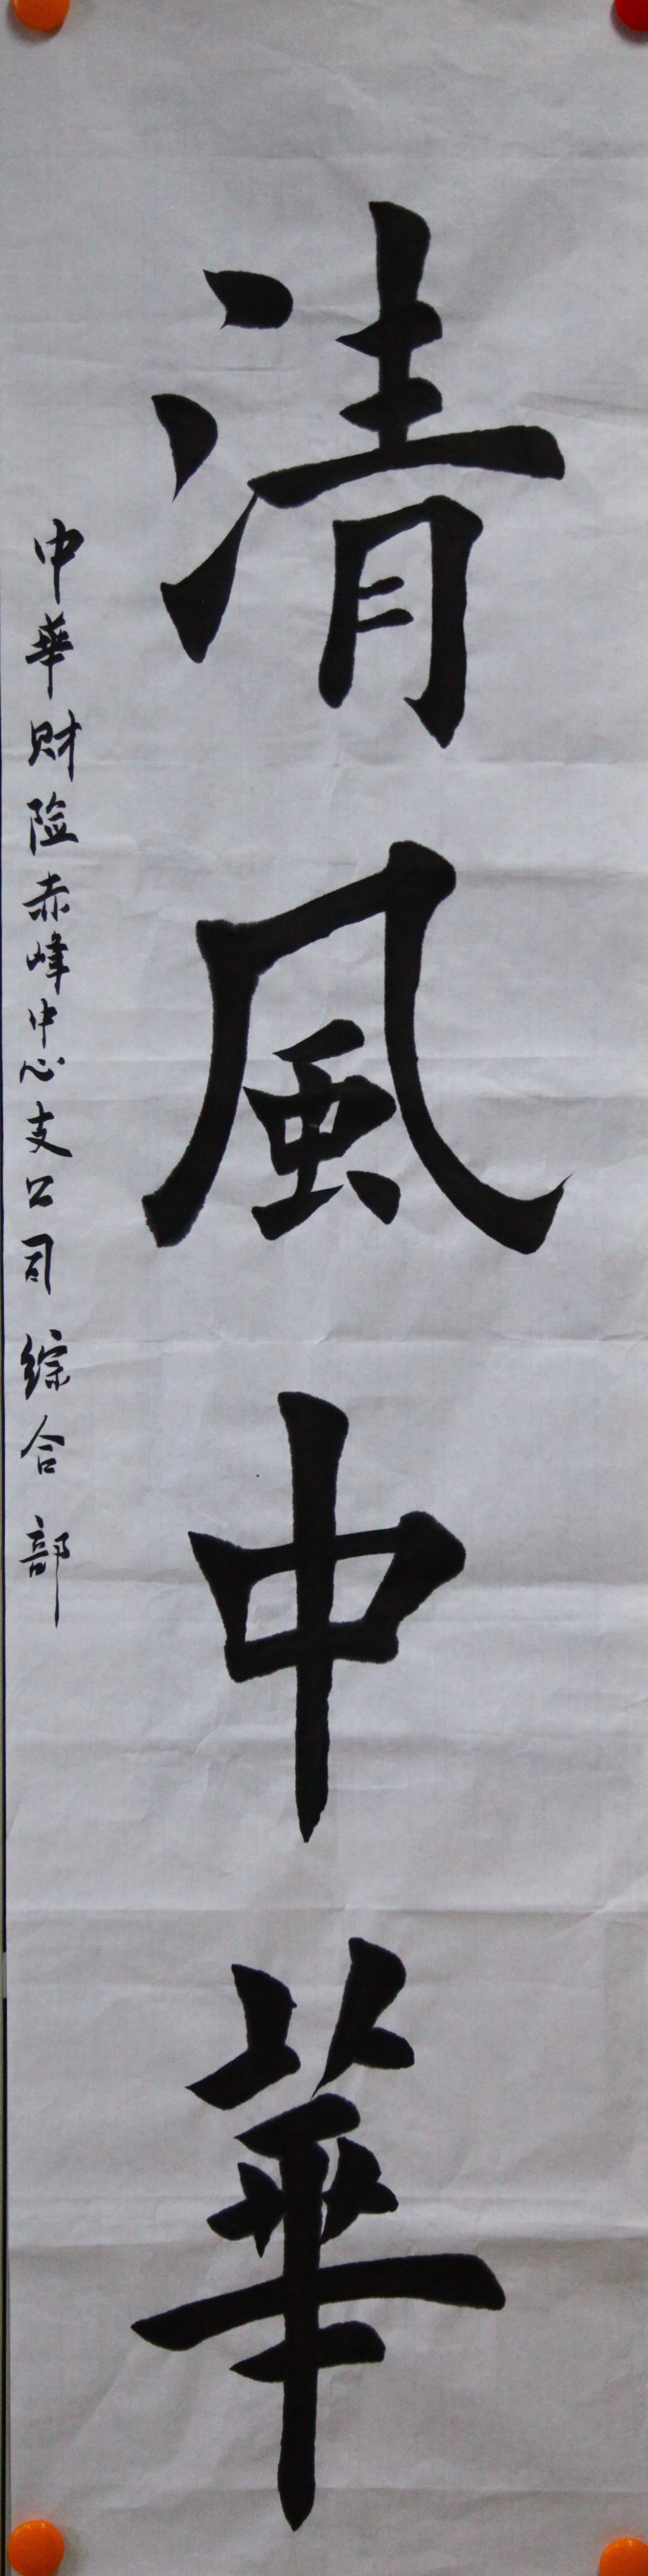 清風中華
中華财险赤峰中心支公司综合部